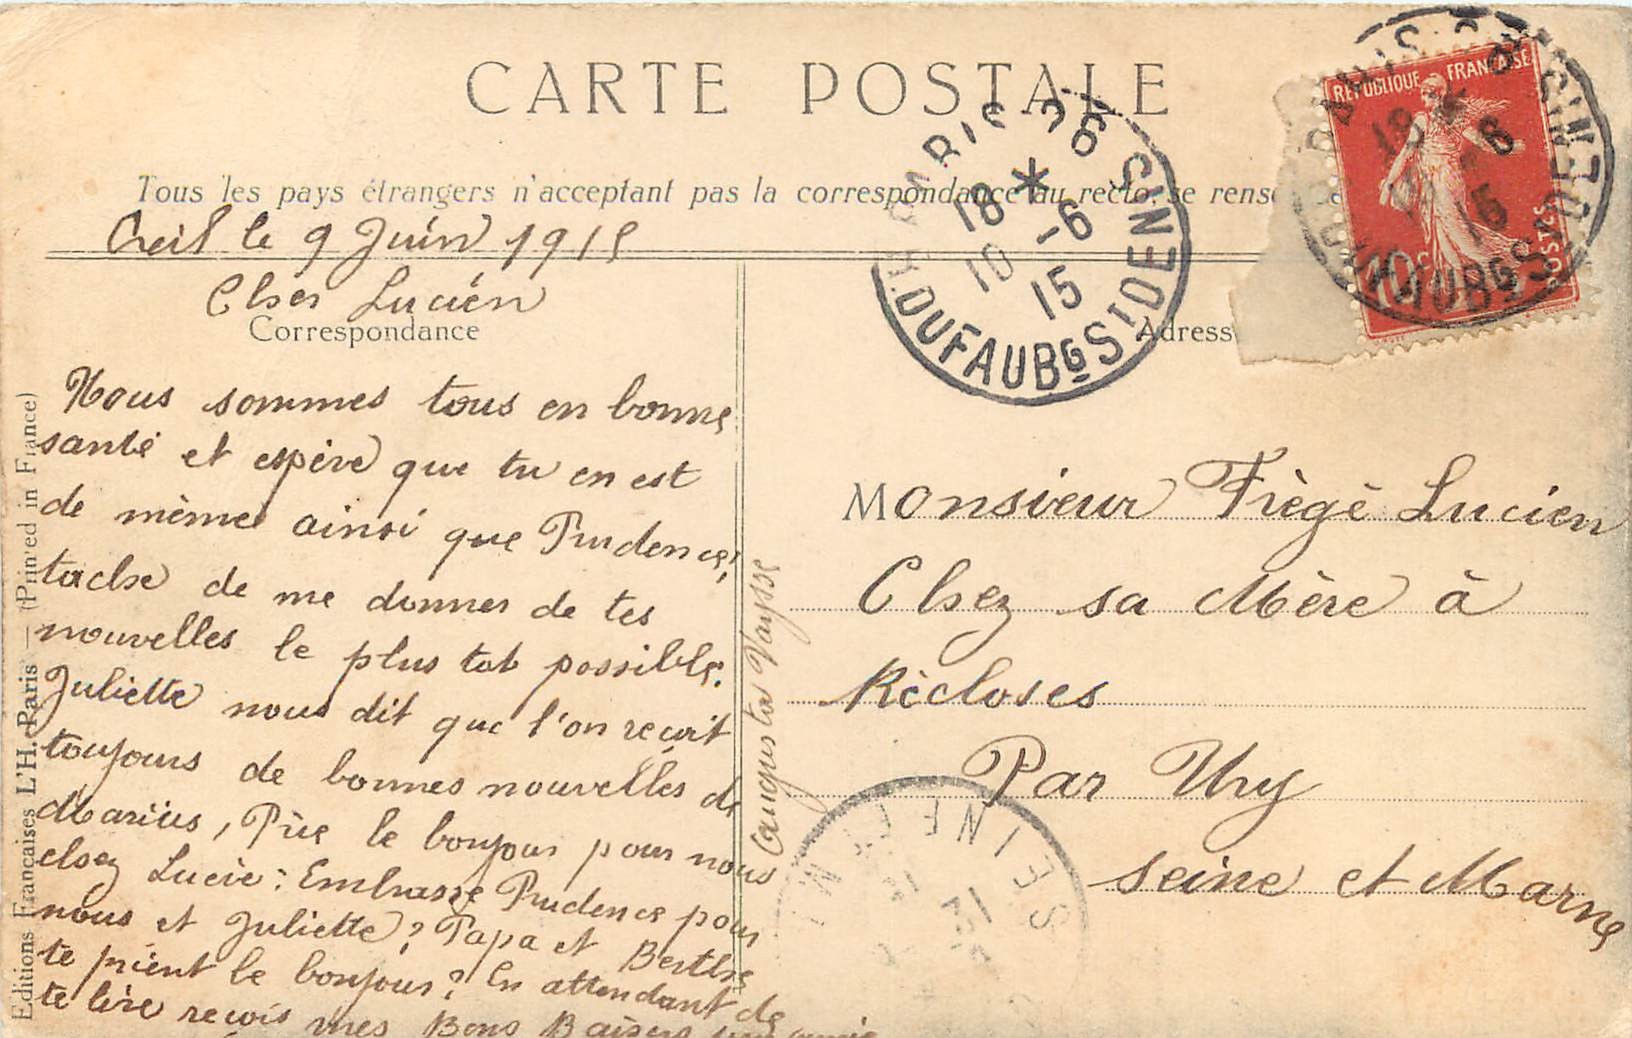 CARTE POSTALE
Tous les pays étrangers n'acceptant pas la correspondance au recto, se rense
Creil le 9 Juin 1915
Cher Lucién
Correspondance
Nous sommes tous en bonne
santé et espère que tu en est
de mème ainsi que Prudence!
tache de me donner de tes
nouvelles le plus tot possible.
Juliette nous dit que l'on reçoit
toujours de bonnes nouvelles de
Marius, Prie le bonjour pour nous
chez Lucie : Embrasse Prudence pour
nous et Juliette? Papa et Berthe
te prient le bonjour? En attendant de
te lire reçois mes Bons Baisers
Augusta Vaysse
Editions Francaises L'H. Paris — (Printed in France)
Adress
Monsieur Fiègé Lucien
Chez sa Mère à
Rècloses
Par Ury
seine et Marne
REPUBLIQUE FRANÇAISE
10c POSTES
PARIS 26
18 * 10 -6 15
R. DU FAUBG ST DENIS
PARIS
18 * -6 15
R. DU FAUBG ST DENIS
SEINE